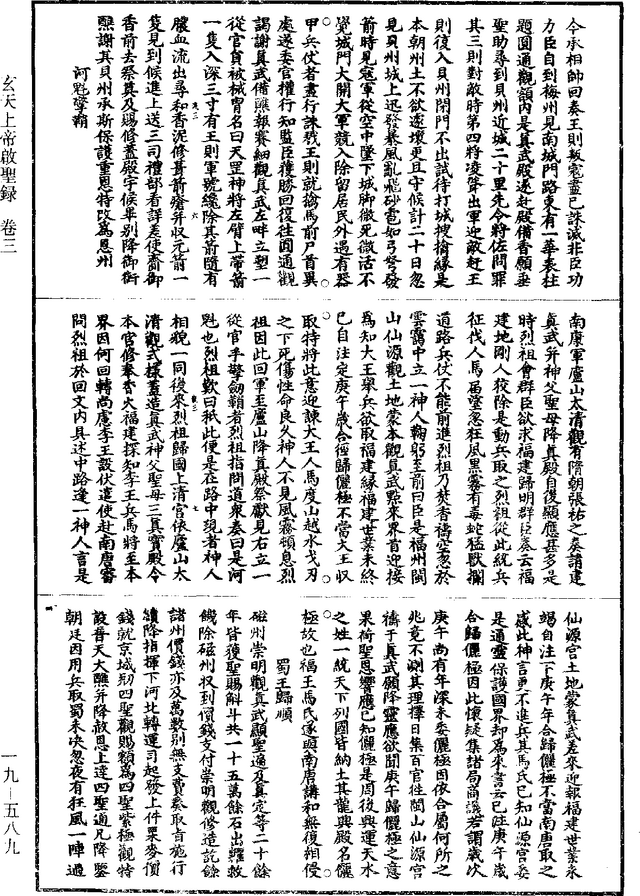 今承相帥回奏王則叛寇盡已誅滅非臣功
力臣自到梅州見南城門路東有一華表柱
題圓通觀額內是真武殿遂赴殿備香願垂
聖助尋到貝州近城二十里先令將佐問罪
其三則對敵時第四將淩聲出軍迎敵赶王
則復入貝州閉門不出試待打城搜擒緣是
本朝州土不欲遂壞更且守候計二十日忽
見貝州城上迅發暴風亂飛砂雹如弓弩發
箭時見寇軍從空中墜下城脚微死微活不
覺城門大開大軍競入除留居民外遇有器
甲兵仗者盡行誅戮王則就擒馬前尸首異
處遂委官權行知監臣獲勝回復往圓通觀
謁謝真武備醮報賽細觀真武左畔立塑一
從官貟被械冑名曰天罡神將左臂上帶箭
一隻入深三寸有王則軍號纔除其箭隨有
膿血流出尋和香泥修賽箭瘡并収元前一
隻見到候進上送三司禮部看詳差使齎御
香前去祭奠及賜修蓋殿宇候畢別降御衙
醮謝其貝州承斯保護重恩特改為恩州
河魁擎鞘
南康軍廬山太清觀有隋朝張祐之奏請建
真武并神父聖母降真殿自後顯應甚多是
時烈祖會群臣欲求福建歸明群臣奏云福
建地剛人狡除是動兵取之烈祖從此統兵
征伐人馬屆望忽狂風黑霧有毒蛇猛獸攔
道路兵仗不能前進烈祖乃焚香禱空忽於
雲靄中立一神人鞠躬至前曰臣是福州閩
山仙源觀土地蒙本觀真武點來界首迎接
為知大王舉兵欲取福建緣福建世業未終
已自注定庚午歲合徑歸儷極不當大王収
取特將此意迎諫大王人馬度山越水戈刃
之下死傷性命良久神人不見風霧頓息烈
祖因此回軍至廬山降真殿祭獻見右立一
從官手擎劒鞘者烈祖指問道衆奏曰是河
魁也烈祖歎曰秖此便是在路中現者神人
相貌一同後來烈祖歸國上清宮依廬山太
清觀式樣蓋造真武神父聖母三真寳殿令
本官修奉香火福建探知李王兵馬將至本
界因何回轉尚慮李王設伏遣使赴南唐審
問烈祖於回文內具述中路逢一神人言是
仙源宮土地蒙真武差來迎報福建世業未
竭自注下庚午年合歸儷極不當南唐取之
感此神言更不進兵其馬氏已知仙源宮委
是通靈保護國界却為來書云已廷庚午歲
合歸儷極因此懷疑集諸局商議若謂歲次
庚午尚有年深未委儷極因依合屬何所之
兆竟不測其理擇日集百官往閩山仙源宮
禱于真武願降靈應欲聞庚午歸儷極之意
果荷聖恩響應已知儷極是周後興運天水
之姓一統天下列國皆納土其龍興殿名儷
極故也福王馬氏遂與南唐講和無復相侵
蜀王歸順
磁州崇明觀真武顯聖過及真定等二十餘
年皆獲聖賜斛斗共一十五萬餘石出糶救
饑除磁州収到價錢支付崇明觀修造訖餘
諸州價錢亦及萬數別無支費奏取旨施行
續降指揮下河北轉運司起發上件粟麥價
錢就京城剏四聖觀賜額為四聖紫極觀特
設普天大醮并降赦恩上達四聖遍凡降鑒
朝廷因用兵取蜀未决忽夜有狂風一陣過
玄天上帝啟聖録 卷三
一九—五八九